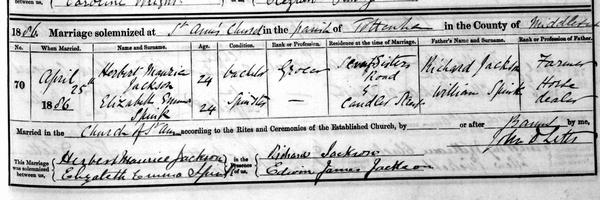 1886 Marriage solemnized at St Ann's Church in the parish of Tottenham in the County of Middlesex
No. When Married. Name and Surname. Age Condition. Rank or Profession. Residence at the time of Marriage. Father's Name and Surname. Rank or Profession of Father.
70 April 25th 1886 Herbert Maurice Jackson 24 bachelor Grocer Seven Sisters Road Richard Jackson Farmer
Elizabeth Emma Spink 24 Spinster — Candler Street William Spink Horse dealer
Married in the Church of St Ann according to the Rites and Ceremonies of the Established Church, by or after Banns by me,
This Marriage was solemnized between us, Herbert Maurice Jackson Elizabeth Emma Spink in the Presence of us, Richard Jackson Edwin James Jackson John